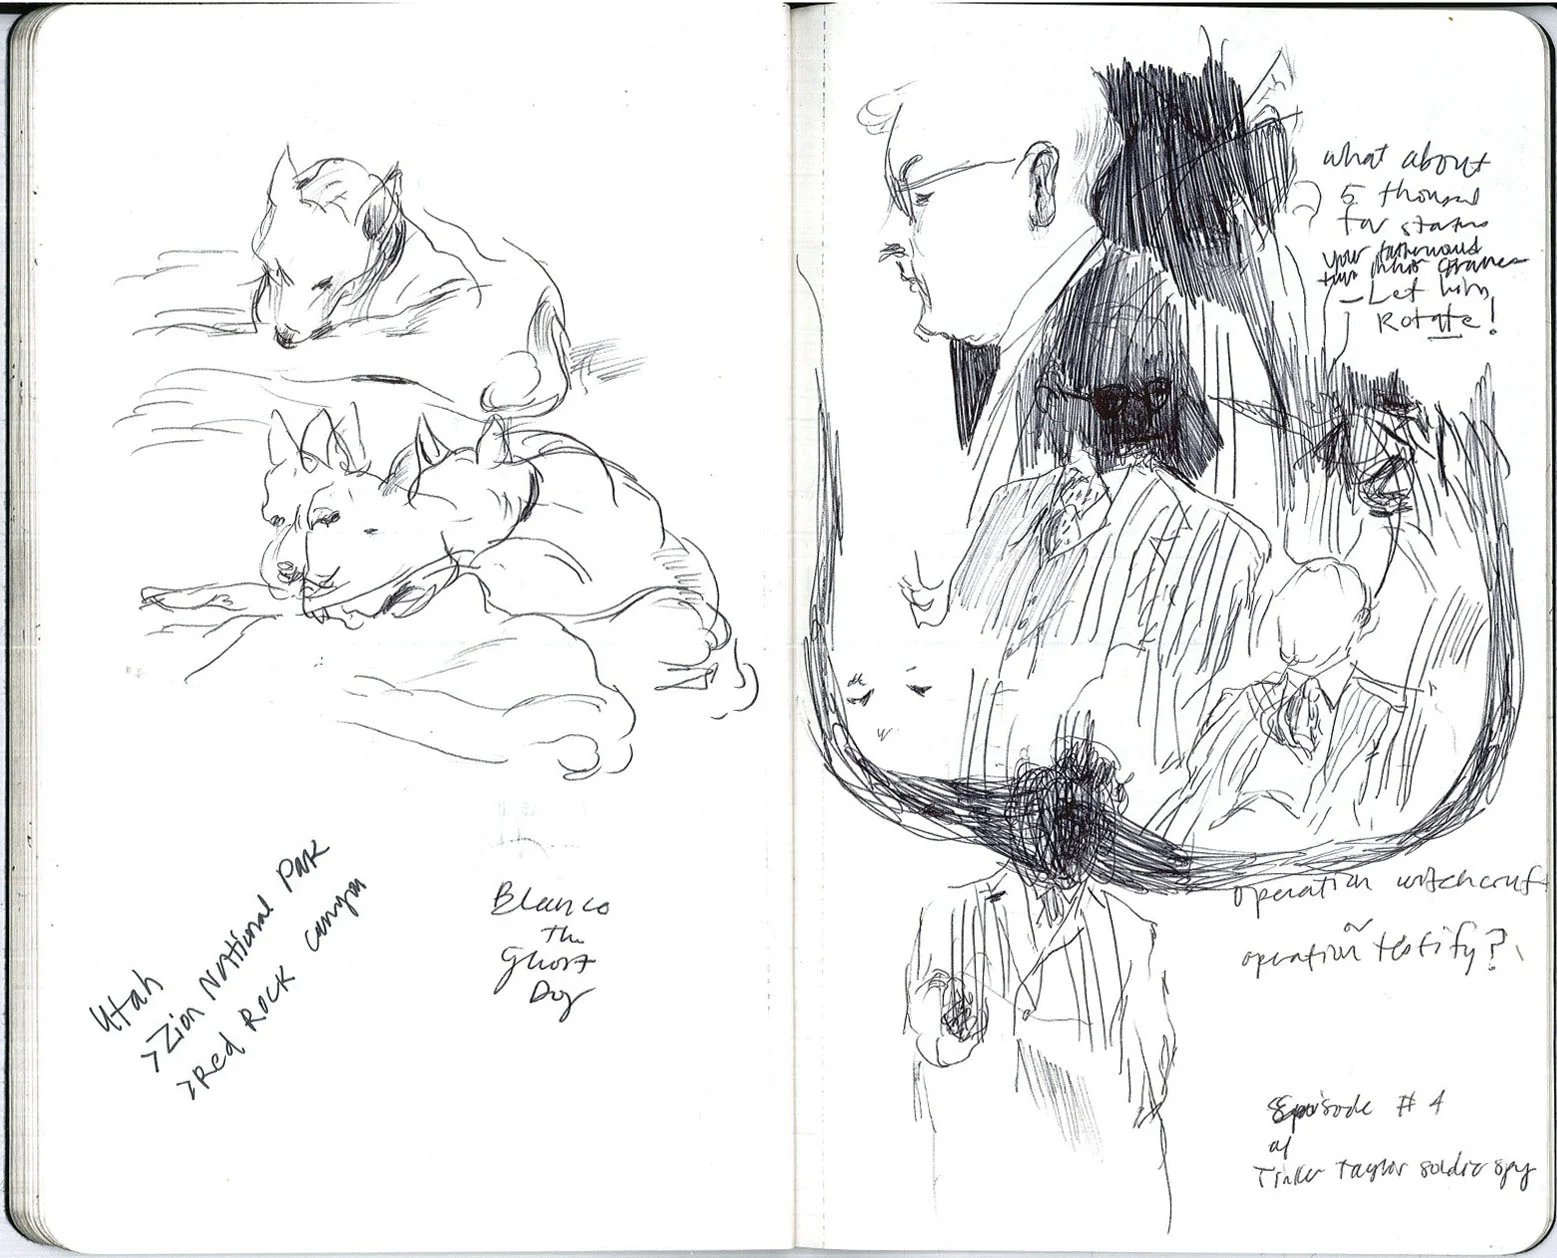 Utah
>Zion National Park
>Red Rock canyon
Blanco
the
Ghost
Dog
what about
5 thousand
for starters
your father would
turn in his grave
– Let him
Rotate!
operation witchcraft
or
operation testify?
Episode # 4
of
Tinker Taylor soldier spy